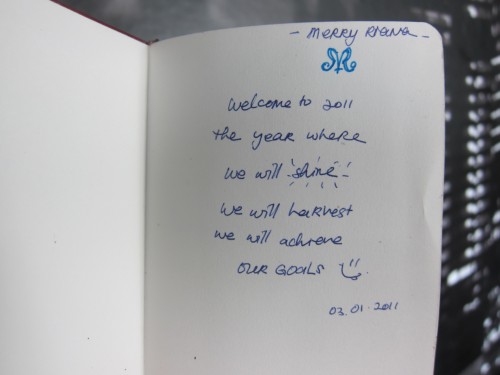 - Merry Riana -
MR
Welcome to 2011
the year where
we will shine
we will harvest
we will achieve
OUR GOALS
03.01.2011